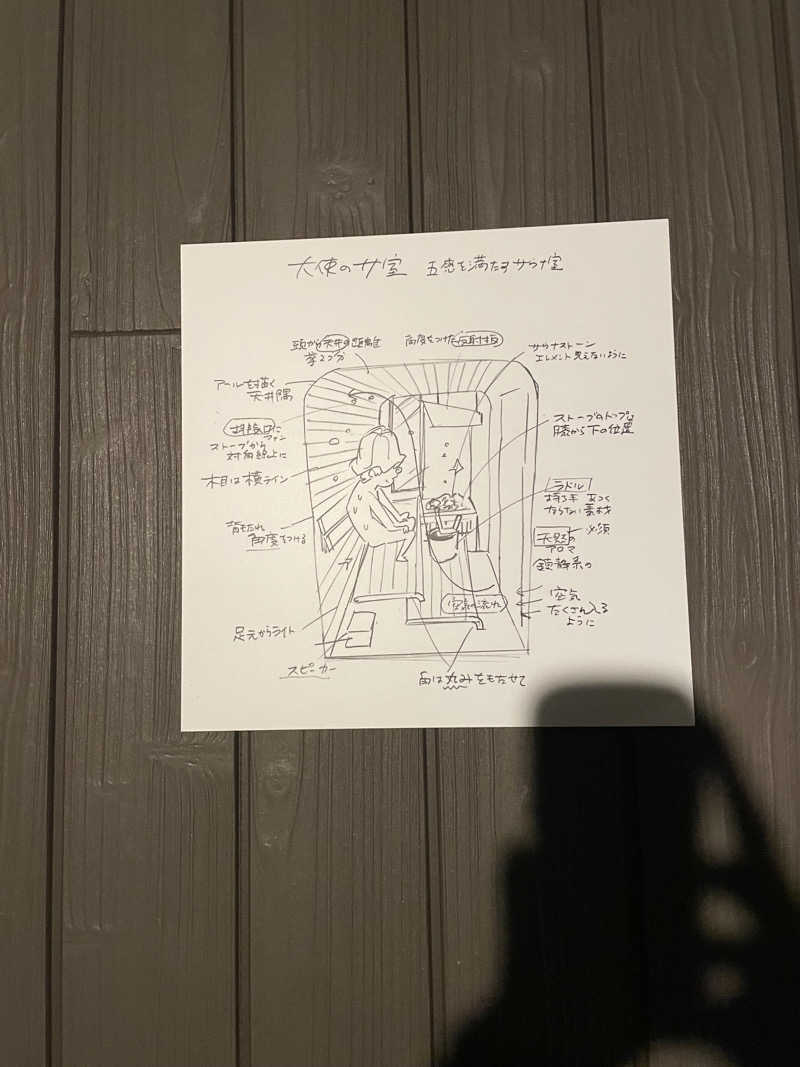 大使のサ室 五感を満たすサウナ室
頭から天井の距離
拳2つ分
角度をつけた反射板
サウナストーン
エレメント見えないように
アールを描く
天井隅
ストーブのトップは
膝から下の位置
排気口に
ファン
ストーブから
対角線上に
木目は横ライン
ラドル
持ち手 あつく
ならない素材
背もたれ
角度をつける
必須
天然の
アロマ
鎮静系の
空気の流れ
空気
たくさん入る
ように
足元からライト
スピーカー
角は丸みをもたせて